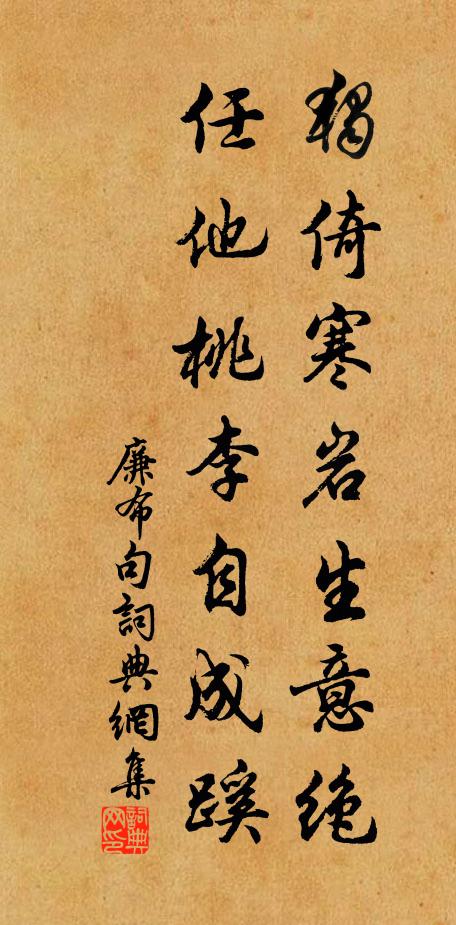 獨倚寒岩生意絶
任他桃李自成蹊
廉布句詞典網集
詞典网印